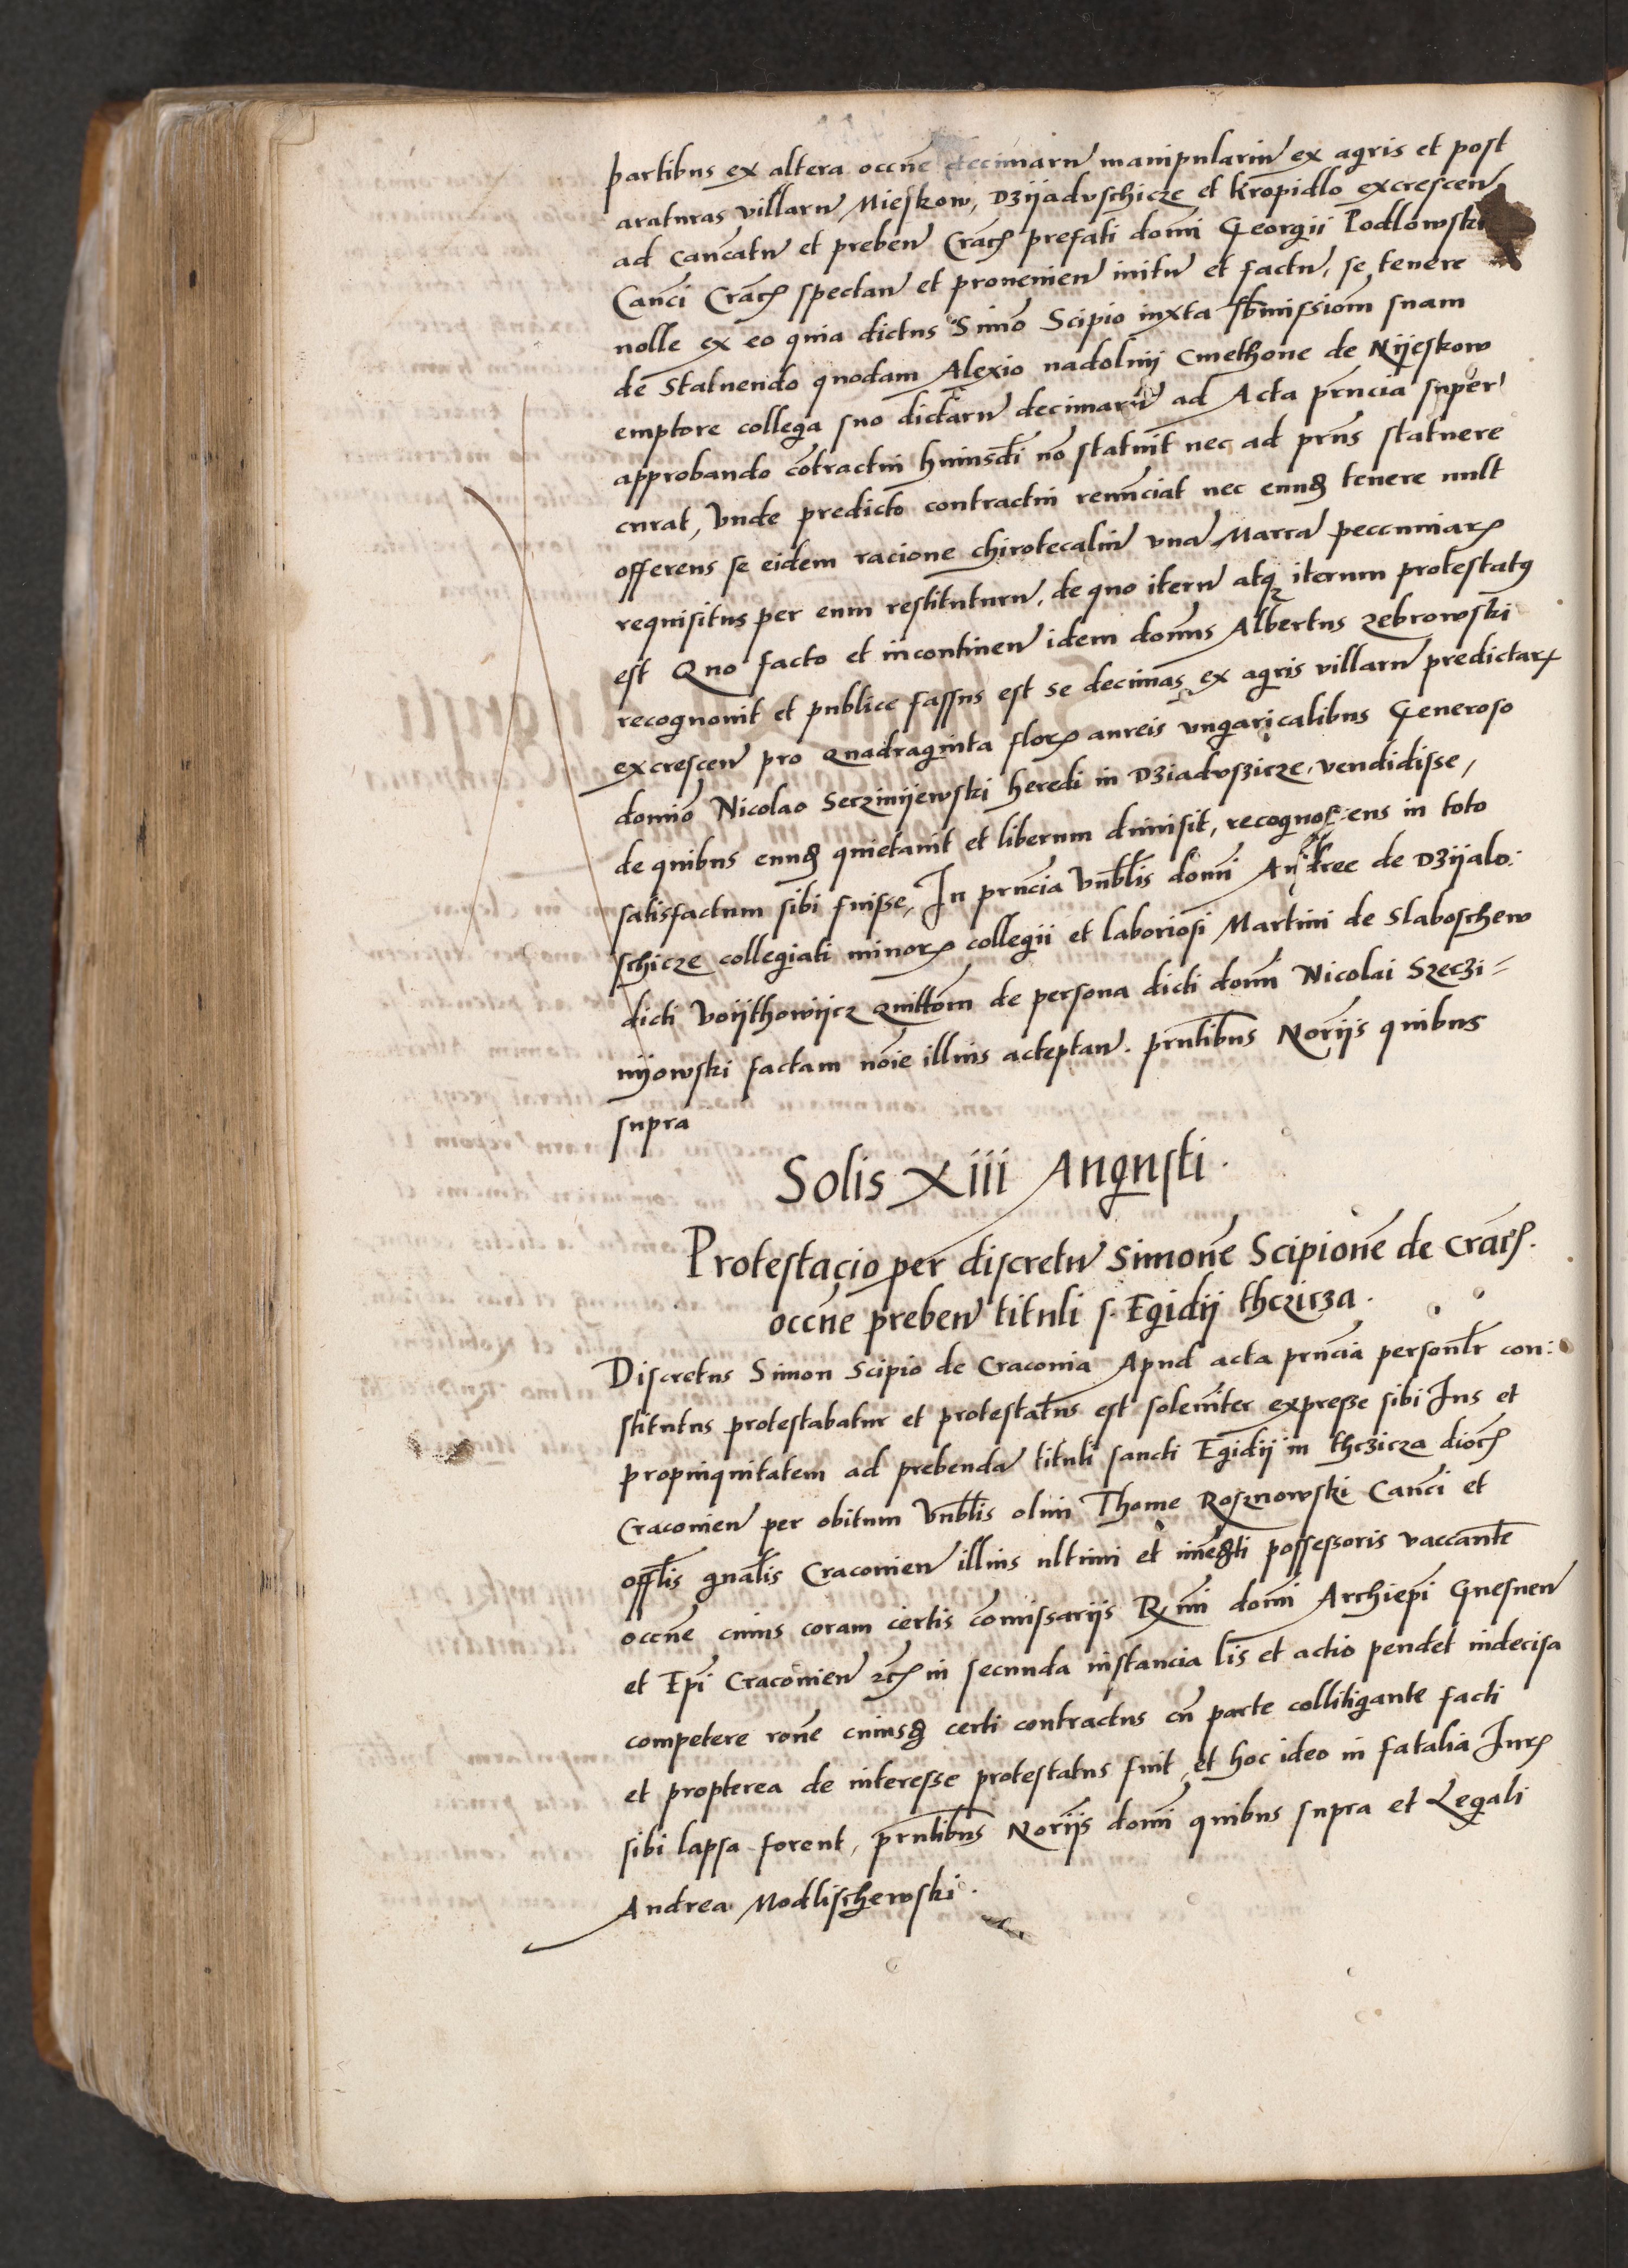 partibus ex altera occne decimaru manipulariu ex agris et post
araturas villaru Mieskow, Dzijaduschicze et Kropidlo excrescen
ad Cancatu et preben Crac prefati domi Georgii Podlowski
Canci Crac spectan et provenien initu et factu, se tenere
nolle ex eo quia dictus Simo Scipio iuxta submissiom suam
de statuendo quodam Alexio nadolnij Cmethone de Mijeskow
emptore collega suo dictaru decimaru ad Acta prncia super
approbando cotractui huiusdi no statuit nec ad prns statuere
curat, Vnde predicto contractui renunciat nec eundem tenere vult
offerens se eidem racione chirotecaliu vna Marca peccuniar
requisitus per eum restituturu, de quo iteru atqz iterum protestatus
est Quo facto et incontinen idem domus Albertus Zebrowski
recognouit et publice fassus est se decimas ex agris villaru predictar
excrescen pro Quadraginta flor aureis vngaricalibus Generoso
domio Nicolao Seczimijewski heredi in Dziadvszicze, vendidisse,
de quibus eundem quietauit et liberum dimisit, recognoscens in toto
satisfactum sibi fuisse, In prncia Vnblis domi Andree de Dzijalo:
schicze collegiati minor collegii et laboriosi Martini de Slaboschew
dicti Voijthowijcz quittom de persona dicti domi Nicolai Szeczi=
mijowski factam noie illius acceptan. prntibus Norijs quibus
supra
Solis Xiii Augusti.
Protestacio per discretu Simone Scipione de Crac.
occne preben tituli s. Egidij thczicza.
Discretus Simon Scipio de Craconia Apud acta prncia personlr con:
stitutus protestabatur et protestatus est solemiter expresse sibi Ius et
propinquitatem ad prebenda tituli sancti Egidij in thczicza dioc
Craconien per obitum Vnblis olim Thome Rosznowski Canci et
offlis gnalis Craconien illius ultimi et immediati possessoris vaccante
occne cuius coram certis comissarijs Rmi domi Archiepi Gnesnen
et Epi Craconien etc in secunda instancia lis et actio pendet indecisa
competere rone cuiusdem certi contractus cu parte collitigante facti
et propterea de interesse protestatus fuit, et hoc ideo in fatalia Iur
sibi lapsa forent, prntibus Norijs domi quibus supra et Legali
Andrea Modlischewski.